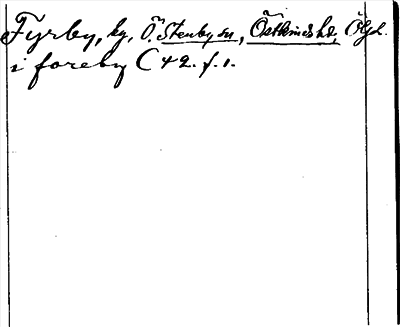 Fyrby, by, Ö. Stenby sn, Östkinds hd, Ögl.
i foreby C 42. f. 1.